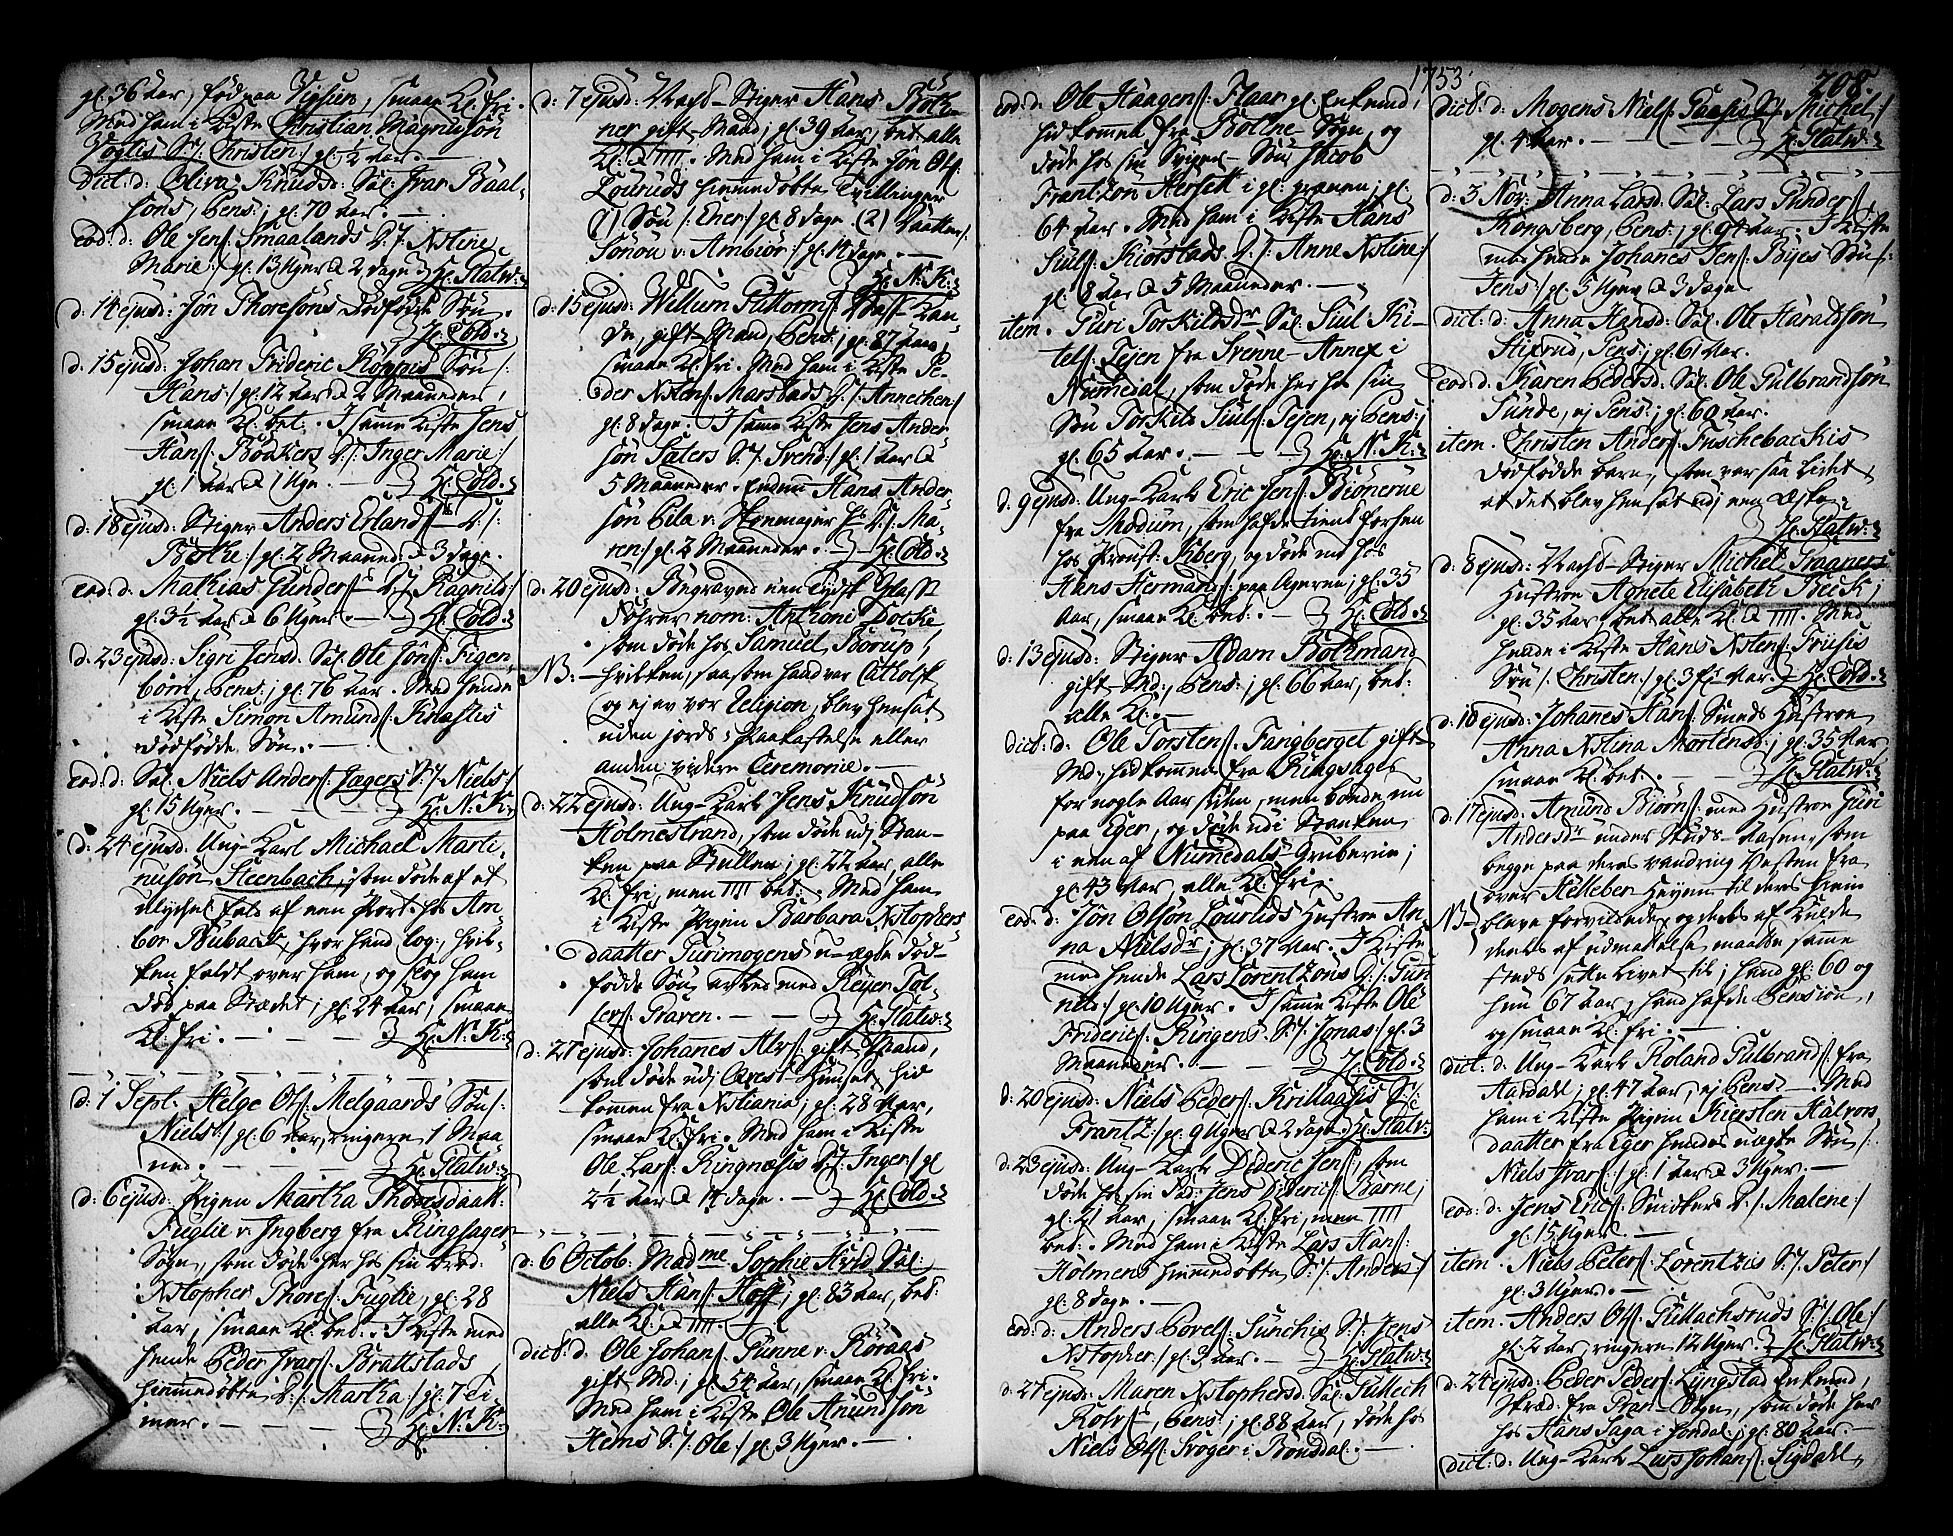 gl: 36 Aar, født paa Vipsun, smaae Kl: fri.
Med ham i Kiste Christian Magnusøn
Voglis S: /: Christen :/ gl: ½ Aar. —
dict: d: Oliva Knudsd: Sal: Ivar Baal-
søns, Pens: ; gl: 70 Aar. —
eod: d: Ole Jens: Smaalands D: /: Xstine
Marie :/ gl: 13 Uger & 2 dage } Hr: Flatw:
d: 14 ejusd: Jon Thoresøns dødfødde Søn.
Hr: Cold:
d: 15 ejusd: Johan Frideric Køppis Søn /:
Hans :/ gl: 12 Aar & 2 Maaneder,
smaae Kl: bet: . I samme Kiste Jens
Hans: Bødkers D: /: Inger Marie :/
gl: 1 Aar & 1 Uge. — } Hr: Cold:
d: 18 ejusd: Stiger Anders Erlands: D: /:
Birthe :/ gl: 2 Maaned: & 3 dage.
eod: d: Mathias Gunders: — D: /: Ragnild :/
gl: 3½ Aar & 6 Uger. — } Hr: Cold:
d: 23 ejusd: Sigri Jensd: Sal: Ole Jons: Figen-
børn, Pens: ; gl: 76 Aar. Med hende
i Kiste Simon Amunds: Knæstis
dødfødde Søn. —
eod: d: Sal: Niels Anders: Jægers S: /: Niels :/
gl: 15 Uger. — } Hr: N: K:
d: 24 ejusd: Ung-Karl Michael Marti-
nusøn Steenbach, som døde af et
ulyckel: fald af een Port hos Am-
bor Bubach, hvor hand log:, hvil-
ken faldt over ham, og slog ham
død paa Stædet; gl: 24 Aar, smaae
Kl: fri. — } Hr: N: K:
d: 1 Sept: Helge Ols: Melgaards Søn /:
Niels :/ gl: 6 Aar, ringere 1 Maa-
ned. — } Hr: Flatw:
d: 6 ejusd: Pigen Martha Thoresdaatt:
Fuglie v: Ingberg fra Ringsager
Sogn, som døde her hos sin Brod:
Xstopher Thores: Fuglie, gl: 28
Aar, smaae Kl: bet: . I Kiste med
hende Peder Ivars: Brattstads
hiemmedøbte D: /: Martha :/ gl: 7 Ti-
mer. — } Hr: N: K:
d: 7 ejusd: Vacht-Stiger Hans Bøth-
ner gift-Mand; gl: 39 Aar, bet: alle
Kl: & 4. Med ham i Kiste Jon Ols:
Louruds hiemmedøbte Tvillinger
(1) Søn /: Ener :/ gl: 8 dage (2) daatter /:
Sønou v: Ambior :/ gl: 14 dage. —
Hr: N: K:
d: 15 ejusd: Willum Guttorms: Vass-Lan-
de, gift-Mand, Pens: ; gl: 87 Aar,
smaae Kl: fri. Med ham i Kiste Pe-
der Xstens: Marstads D: /: Annechen :/
gl: 8 dage. I samme Kiste Jens Ander-
søn Säters S: /: Svend :/ gl: 1 Aar &
5 Maaneder. Endnu Hans Ander-
søn Pela v: Steenmajer D: /: Ma-
ren :/ gl: 2 Maaneder. — } Hr: Cold:
d: 20 ejusd: Begravne een Tydsk Glass
Førrer nom: Anthoni Docke
som døde hos Samuel Borup;
NB: — hvilken, saasom hand var Catholsk
(og ej av vor Religion, blev hensat
uden jords-Paakastelse eller
anden videre Ceremonie. —
d: 22 ejusd: Ung-Karl Jens Knudsøn
Holmestrand, som døde udj Stan-
ken paa Skullen; gl: 22 Aar, alle
Kl: fri, men 4 bet: . Med ham
i Kiste Pigen Barbara Xstophers
daatter Gurimogens u-ægte død-
fødde Søn avlet med Reyer Tol-
lefs: Graven. — } Hr: Flatw:
d: 27 ejusd: Johanes Alvs: gift-Mand,
som døde udj Arest-Huuset, hid
kommen fra Xstiania; gl: 28 Aar,
smaae Kl: fri. Med ham i Kiste
Ole Lars: Ringnæsis D: /: Inger :/ gl:
2½ Aar & 14 dage. — } Hr: Cold:
d: 6 Octob: Madme Sophie Hvid Sal:
Niels Hans: Hoff; gl: 83 Aar, bet:
alle Kl: & 4.
dict: d: Ole Johans: Gunne v: Röraas
gift Md: ; gl: 54 Aar, smaae Kl: fri.
Med ham i Kiste Ole Anundsøn
Hems S: /: Ole :/ gl: 3 Uger. —
1753.
eod: d: Ole Haagens: Flaar gl: Enkemd:
hidkommen fra Bollne-Sogn, og
døde hos sin Sviger-Søn Jacob
Frantzøn Herseth i gl: grænen; gl:
64 Aar. Med ham i Kiste Hans
Siuls: Kiorstads D: /: Anne Xstine :/
gl: 8 Aar & 5 Maaneder. —
item. Guri Torkildsdr Sal: Siul Ki-
tels: Tejen fra Svenne-Annex i
Numedal, som døde her hos sin
Søn Torkild Siuls: Tejen, ej Pens: ;
gl: 65 Aar. — } Hr: N: K:
d: 9 ejusd: Ung-Karl Eric Jens: Biönerüe
fra Modum, som hafde tient forhen
hos Provst: Kberg, og døde nu hos
Hans Hermands: paa Agerne; gl: 35
Aar, smaae Kl: bet: . — } Hr: Cold:
d: 13 ejusd: Stiger Adam Bothmand
gift-Md:, Pens: ; gl: 66 Aar, bet:
alle Kl: —
dict: d: Ole Torstens: Fangberget gift-
Md: hidkommen fra Ringsager
for nogle Aar siden, men boende nu
paa Eger, og døde udi Stanken
i een af Numedals-Gruberne;
gl: 43 Aar, alle Kl: fri.
eod: d: Jon Olsøn Louruds Hustroe An-
na Nielsdr; gl: 37 Aar. I Kiste
med hende Lars Lorentzøns D: /: Gun-
nild :/ gl: 10 Uger. I samme Kiste Ole
Friderics: Ringens S: /: Jonas :/ gl: 3
Maaneder. — } Hr: Cold:
d: 20 ejusd: Niels Peders: Krillaasis S: /:
Frantz :/ gl: 9 Uger & 2 dage } Hr: Flatw:
d: 23 ejusd: Ung-Karl Dideric Jens:, som
døde hos sin Fad: Jens Dideric: Barne;
gl: 21 Aar, smaae Kl: fri, men 4
bet: . Med ham i Kiste Lars Hans:
Holmens hiemmedøbte S: /: Anders :/
gl: 8 dage. —
eod: d: Anders Povels: Surichis S: /: Jens
Xstopher :/ gl: 3 Aar. — } Hr: Flatw:
d: 27 ejusd: Maren Xstophersd: Sal: Gullech
Rolvs: —, Pens: ; gl: 88 Aar, døde hos
Niels Ols: Svoger i Bonsdal. —
208.
dict: d: Mogens Niels: Gaasis S: /: Michel :/
gl: 4 Aar. — } Hr: Flatw:
d: 3 Nov: Anna Larsd: Sal: Lars Gunders:
Kongsberg, Pens: ; gl: 91 Aar. I Kiste
med hende Johanes Jens: Bøjes Søn /:
Jens :/ gl: 5 Uger & 3 dage.
dict: d: Anna Hansd: Sal: Ole Haraldsøn
Stixrud, Pens: ; gl: 61 Aar.
eod: d: Karen Pedersd: Sal: Ole Gulbrandsøn
Sunde, ej Pens: ; gl: 60 Aar.
item. Christen Anders: Fuschebackis
dødfødde barn, som var saa lidet,
at det blev hensat udj een Æske.
Hr: Flatw:
d: 8 ejusd: Vacht-Stiger Michel Graaners
Hustroe Agnete Elisabeth Beck;
gl: 35 Aar, bet: alle Kl: & 4. Med
hende i Kiste Hans Xstens: Gousis
Søn /: Christen :/ gl: 3 Aar. } Hr: Cold:
d: 10 ejusd: Johanes Hans: Smeds Hustroe
Anna Xstina Mortensd: ; gl: 35 Aar
smaae Kl: bet: . — } Hr: Flatw:
d: 17 ejusd: Amund Biörns: med Hustroe Guri
Andersdr under Skuds-Aasen, som
begge paa deres vandring Vesten fra
over Helleber Heyen til deres hiem
NB — bleve forvildede, og deels af Kulde
deels af udmattelse maatte samme
steds sette livet til; hand gl: 60 og
hun 67 Aar, hand hafde Pension,
og smaae Kl: fri. —
dict: d: Ung-Karl Roland Gulbrands: fra
Aardahl; gl: 47 Aar, ej Pens: —. Med
ham i Kiste Pigen Kiersten Halvors
daatter fra Eger hendes uægte Søn /:
Niels Ivars: :/ gl: 1 Aar & 3 Uger. —
eod: d: Jens Erics: Snidkers D: /: Malene :/
gl: 15 Uger. —
item. Niels Peters: Lorentzis S: /: Peter :/
gl: 3 Uger. —
item. Anders Ols: Gullachsruds S: /: Ole :/
gl: 2 Aar, ringere 12 Uger. } Hr: Flatw:
d: 24 ejusd: Peder Peders: Lyngstad Enkemd:
Skræd: fra Gran-Sogn, som døde her
hos Hans Saga i Jondal; gl: 80 Aar. —
dict: d: Ung-Karl Lars Johans: Sigdahl,